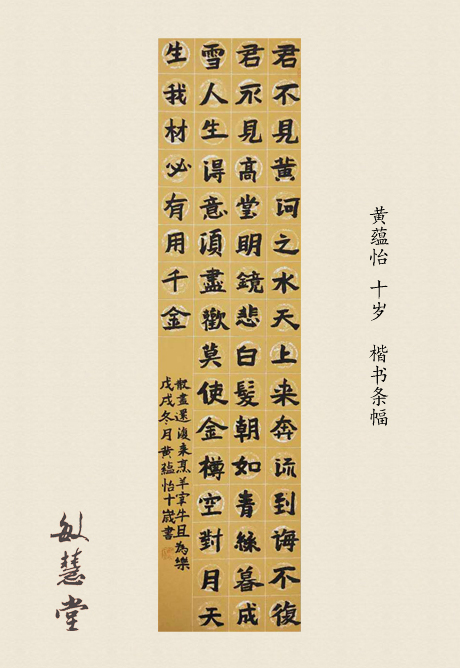 黄蕴怡 十岁 楷书条幅
君不見黃河之水天上来奔流到海不復
君不見高堂明鏡悲白髮朝如青絲暮成
雪人生得意須盡歡莫使金樽空對月天
生我材必有用千金
散盡還復来烹羊宰牛且為樂
戊戌冬月黄蕴怡十歲書
敏慧堂